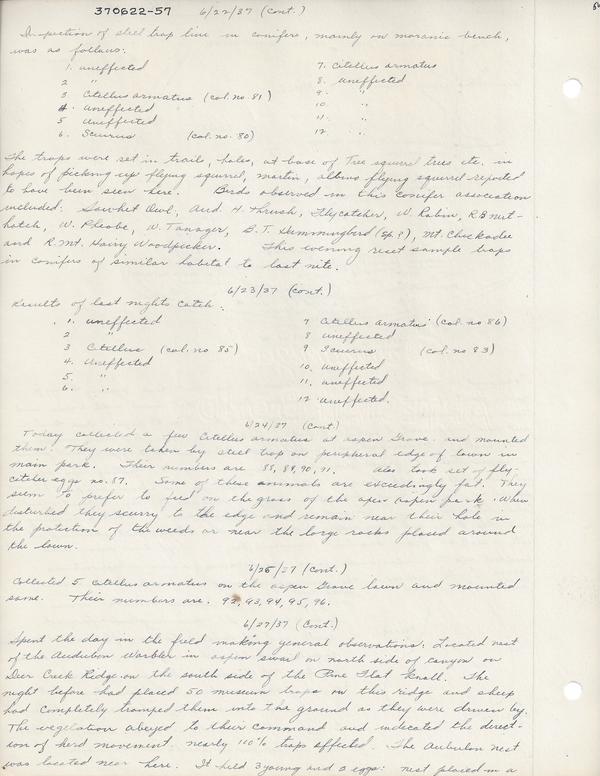 370622-57 6/22/37 (Cont.)
Inspection of steel trap line in conifers, mainly on morainic bench,
was as follows:
1. uneffected 7. Citellus armatus
2 " 8. uneffected
3 Citellus armatus (col. no. 81) 9. "
4. uneffected 10 "
5 uneffected 11. "
6. Sciurus (col. no. 80) 12. "
The traps were set in trails, holes, at base of Tree squirrel trees etc. in
hopes of picking up flying squirrel, martin, albino flying squirrel reported
to have been seen here. Birds observed in this conifer association
included: Sawhet Owl, Aud. H. Thrush, Flycatcher, W. Robin, R.B. nut-
hatch, W. Pheobe, W. Tanager, B.T. Hummingbird (sp.?), Mt. Chickadee
and R. Mt. Hairy Woodpecker. This evening reset sample traps
in conifers of similar habitat to last nite.
6/23/37 (Cont.)
Results of last nights catch:
1. uneffected 7 Citellus armatus (col. no 86)
2 " 8 uneffected
3 Citellus (col. no 85) 9 Sciurus (col. no 83)
4. uneffected 10. uneffected
5. " 11. uneffected
6. " 12 uneffected.
6/24/37 (Cont)
Today collected a few Citellus armatus at aspen Grove and mounted
them. They were taken by steel trap on peripheral edge of lawn in
main park. Their numbers are 88, 89, 90, 91. Also took set of fly-
catcher eggs no. 87. Some of these animals are exceedingly fat. They
seem to prefer to feed on the grass of the open aspen park. When
disturbed they scurry to the edge and remain near their hole in
the protection of the weeds or near the large rocks placed around
the lawn.
6/25/37 (Cont.)
Collected 5 Citellus armatus on the aspen Grove lawn and mounted
same. Their numbers are. 92, 93, 94, 95, 96.
6/27/37 (Cont.)
Spent the day in the field making general observations: Located nest
of the Audubon Warbler in aspen swail on north side of canyon on
Deer Creek Ridge on the south side of the Pine Flat knall. The
night before had placed 50 museum traps on this ridge and sheep
had completely tramped them into the ground as they were driven by.
The vegetation abeyed to their command and indicated the direct-
ion of herd movement. nearly 100% traps effected. The Aubulon nest
was located near here. It held 3 young and 2 eggs: nest placed in a